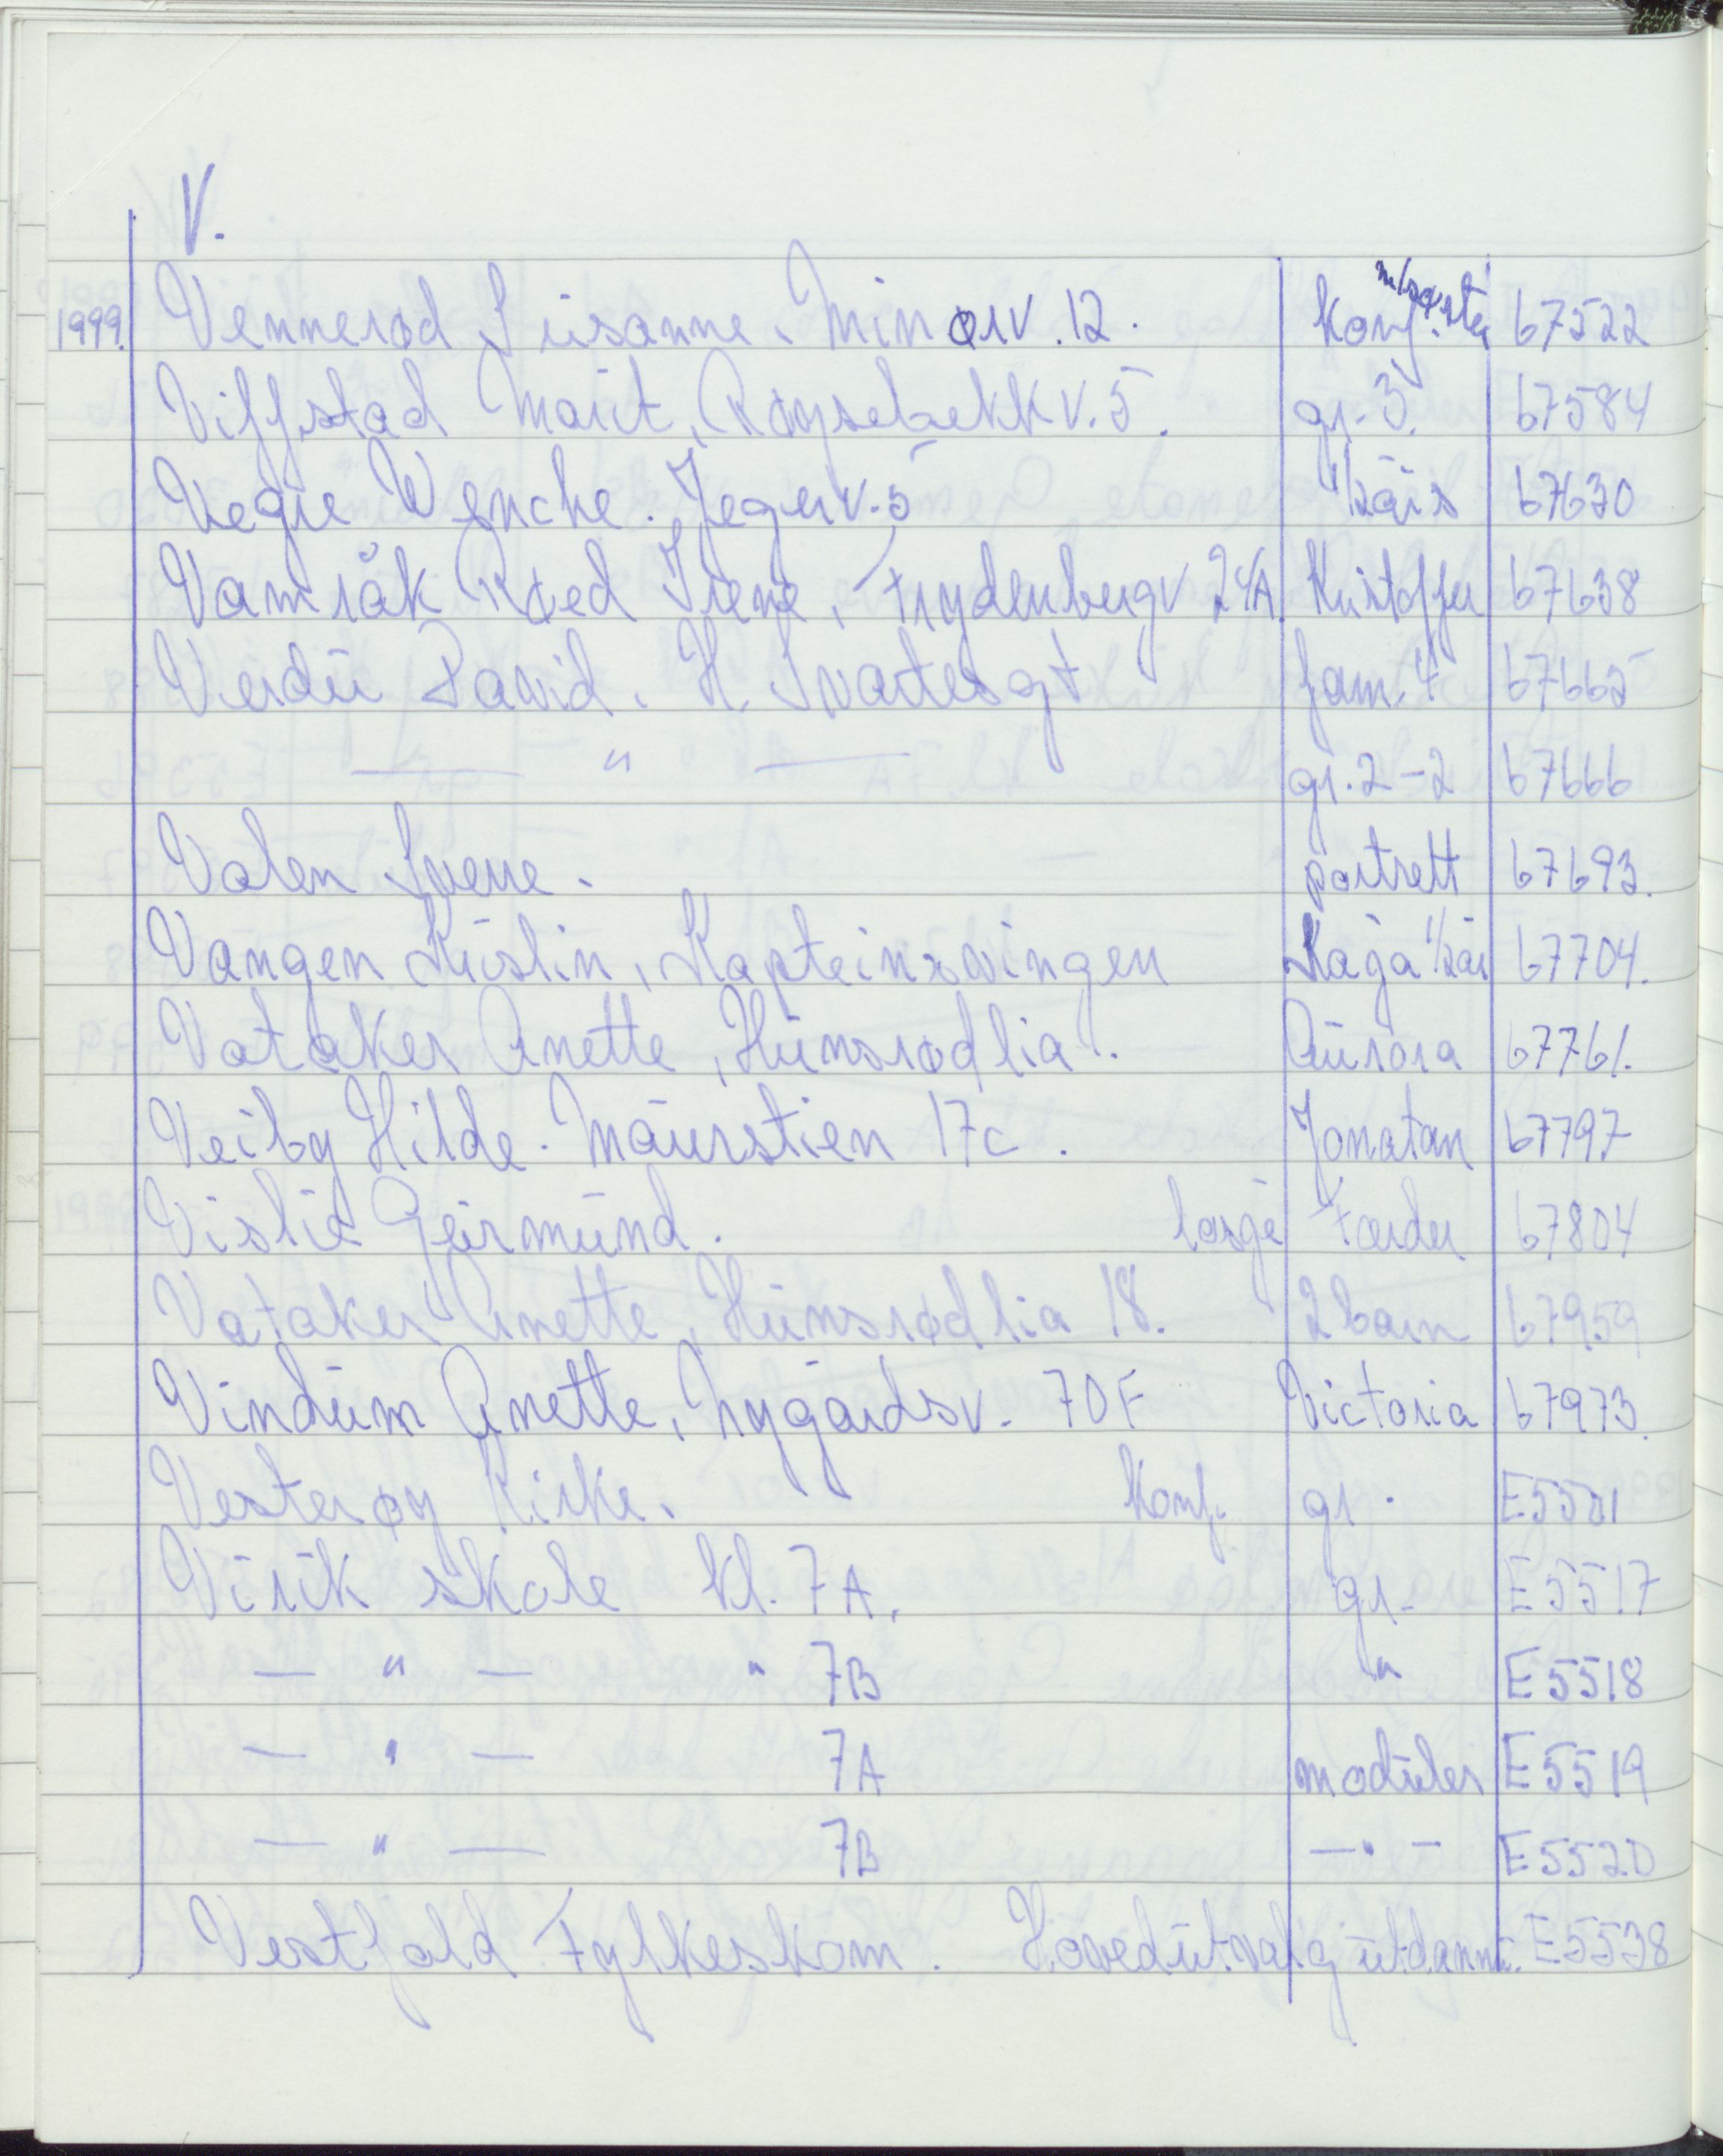 V.
1999. Vennerød Susanne. Minorv. 12. Konf. m/søster 67522
Viffstad Marit, Røysebekkv. 5. gr. 3. 67584
Vegie Wenche. Jegerv. 5 1/2 års 67630
Vamråk Røed Irene, Frydenbergv 24A. Kristoffer 67638
Verdü David. H. Svartesgt fam. 4 67665
— " — gr. 2-2 67666
Valen Sverre. portrett 67693.
Vangen Kristin, Kapteinsvingen Kaja 1/2 år 67704.
Vataker Anette, Hunsrødlia. Aurora 67761.
Veiby Hilde. Maurstien 17c. Jonatan 67797
Vislie Geirmund. losje Færder 67804
Vataker Anette, Hunsrødlia 18. 2 barn 67959
Vindum Anette, Nygårdsv. 70F Victoria 67973.
Vesterøy Kirke. Konf. gr. E5501
Virik skole kl. 7A. gr. E5517
— " — " 7B " E5518
— " — 7A moduler E5519
— " — 7B — " — E5520
Vestfold Fylkeskom. Hovedutvalg utdann. E5538